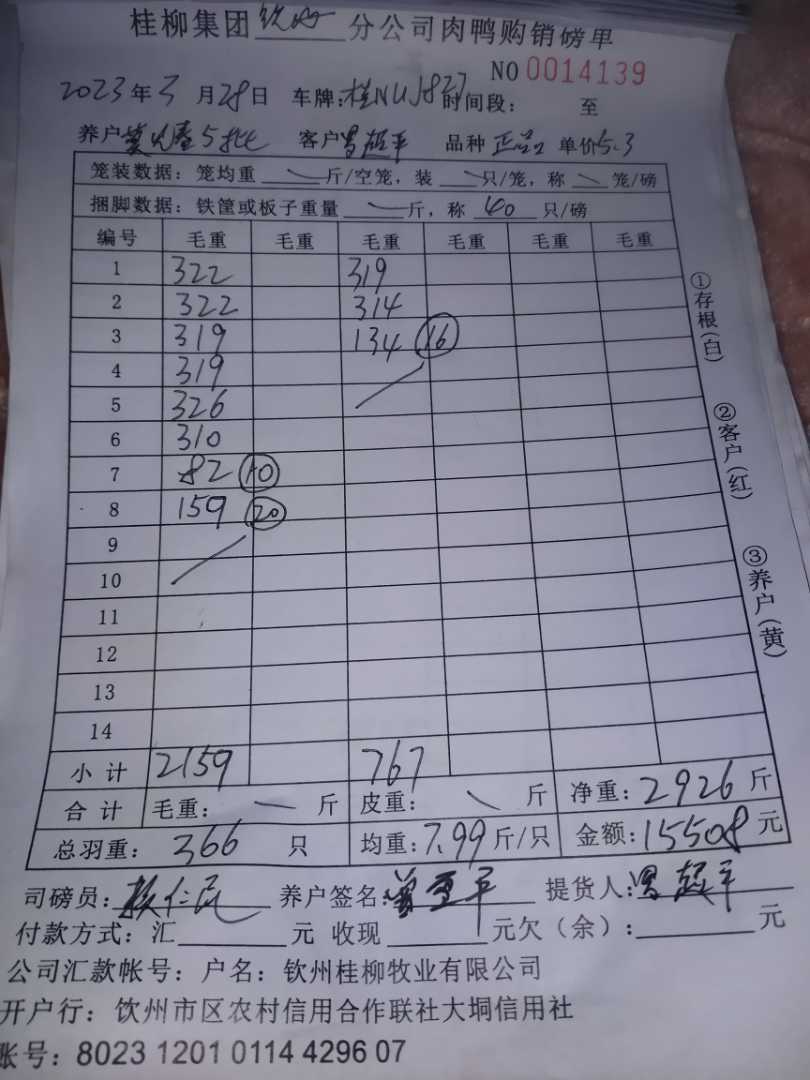 桂柳集团 钦州 分公司肉鸭购销磅单
NO 0014139
2023年3月28日 车牌:桂NUJ827 时间段: 至
养户 5批 客户 超平 品种 正品 单价5.3
笼装数据: 笼均重 斤/空笼, 装 只/笼, 称 笼/磅
捆脚数据: 铁筐或板子重量 斤, 称 40 只/磅
编号 毛重 毛重 毛重 毛重 毛重 毛重
1 322 319
2 322 314
3 319 134 16
4 319
5 326
6 310
7 82 10
8 159 20
9
10
11
12
13
14
小计 2159 767
合计 毛重: 斤 皮重: 斤 净重: 2926 斤
总羽重: 366 只 均重: 7.99 斤/只 金额: 15508 元
司磅员: 仁民 养户签名: 提货人: 超平
付款方式: 汇 元 收现 元欠(余): 元
公司汇款帐号: 户名: 钦州桂柳牧业有限公司
开户行: 钦州市区农村信用合作联社大垌信用社
账号: 8023 1201 0114 4296 07
①存根(白)
②客户(红)
③养户(黄)